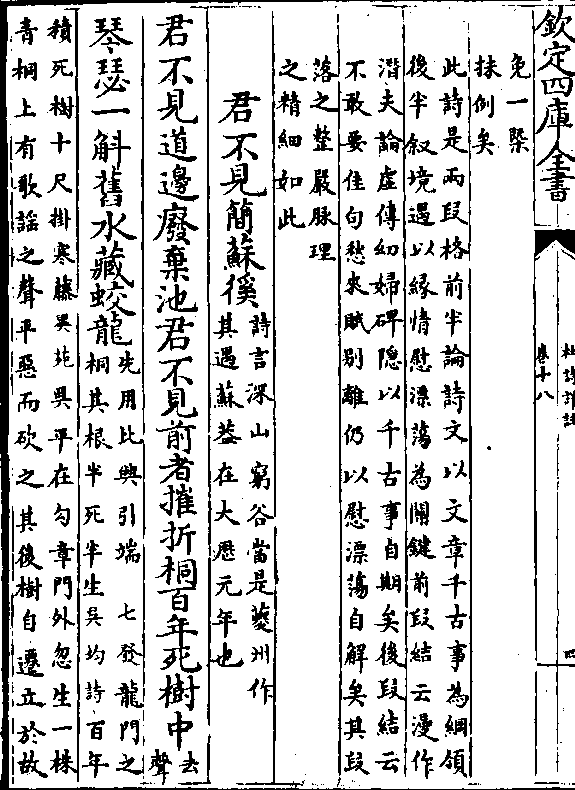 欽定四庫全書
杜詩詳註
卷十八
四
免一槩
抹倒矣
此詩是兩段格前半論詩文以文章千古事為綱領
後半叙境遇以緣情慰漂蕩為關鍵前段結云漫作
潛夫論虛傳幼婦碑隱以千古事自期矣後段結云
不敢要佳句愁來賦別離仍以慰漂蕩自解矣其段
落之整嚴脉理
之精細如此
君不見簡蘇徯
詩言深山窮谷當是夔州作
其遇蘇葢在大厯元年也
君不見道邊廢棄池君不見前者摧折桐百年死樹中
去
聲
琴瑟一斛舊水藏蛟龍
先用比興引端　七發龍門之
桐其根半死半生吳均詩百年
積死樹十尺掛寒藤異苑吳平在勾章門外忽生一株
青桐上有歌謡之聲平惡而砍之其後樹自遷立於故